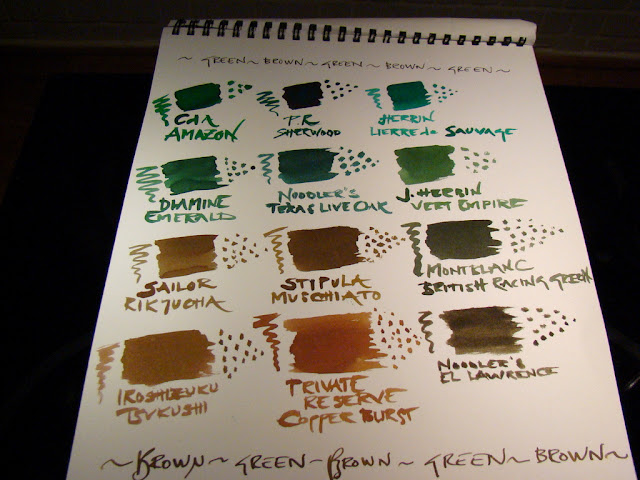 ~ GREEN ~ BROWN ~ GREEN ~ BROWN ~ GREEN ~
C d'A
AMAZON
P.R
SHERWOOD
HERBIN
LIERRE de SAUVAGE
DIAMINE
EMERALD
NOODLER'S
TEXAS LIVE OAK
J. HERBIN
VERT EMPIRE
SAILOR
RIKYUCHA
STIPULA
MUSCHIATO
MONTBLANC
BRITISH RACING GREEN
IROSHIZUKU
TSUKUSHI
PRIVATE
RESERVE
COPPER BURST
NOODLER'S
EL LAWRENCE
~ BROWN ~ GREEN ~ BROWN ~ GREEN ~ BROWN ~